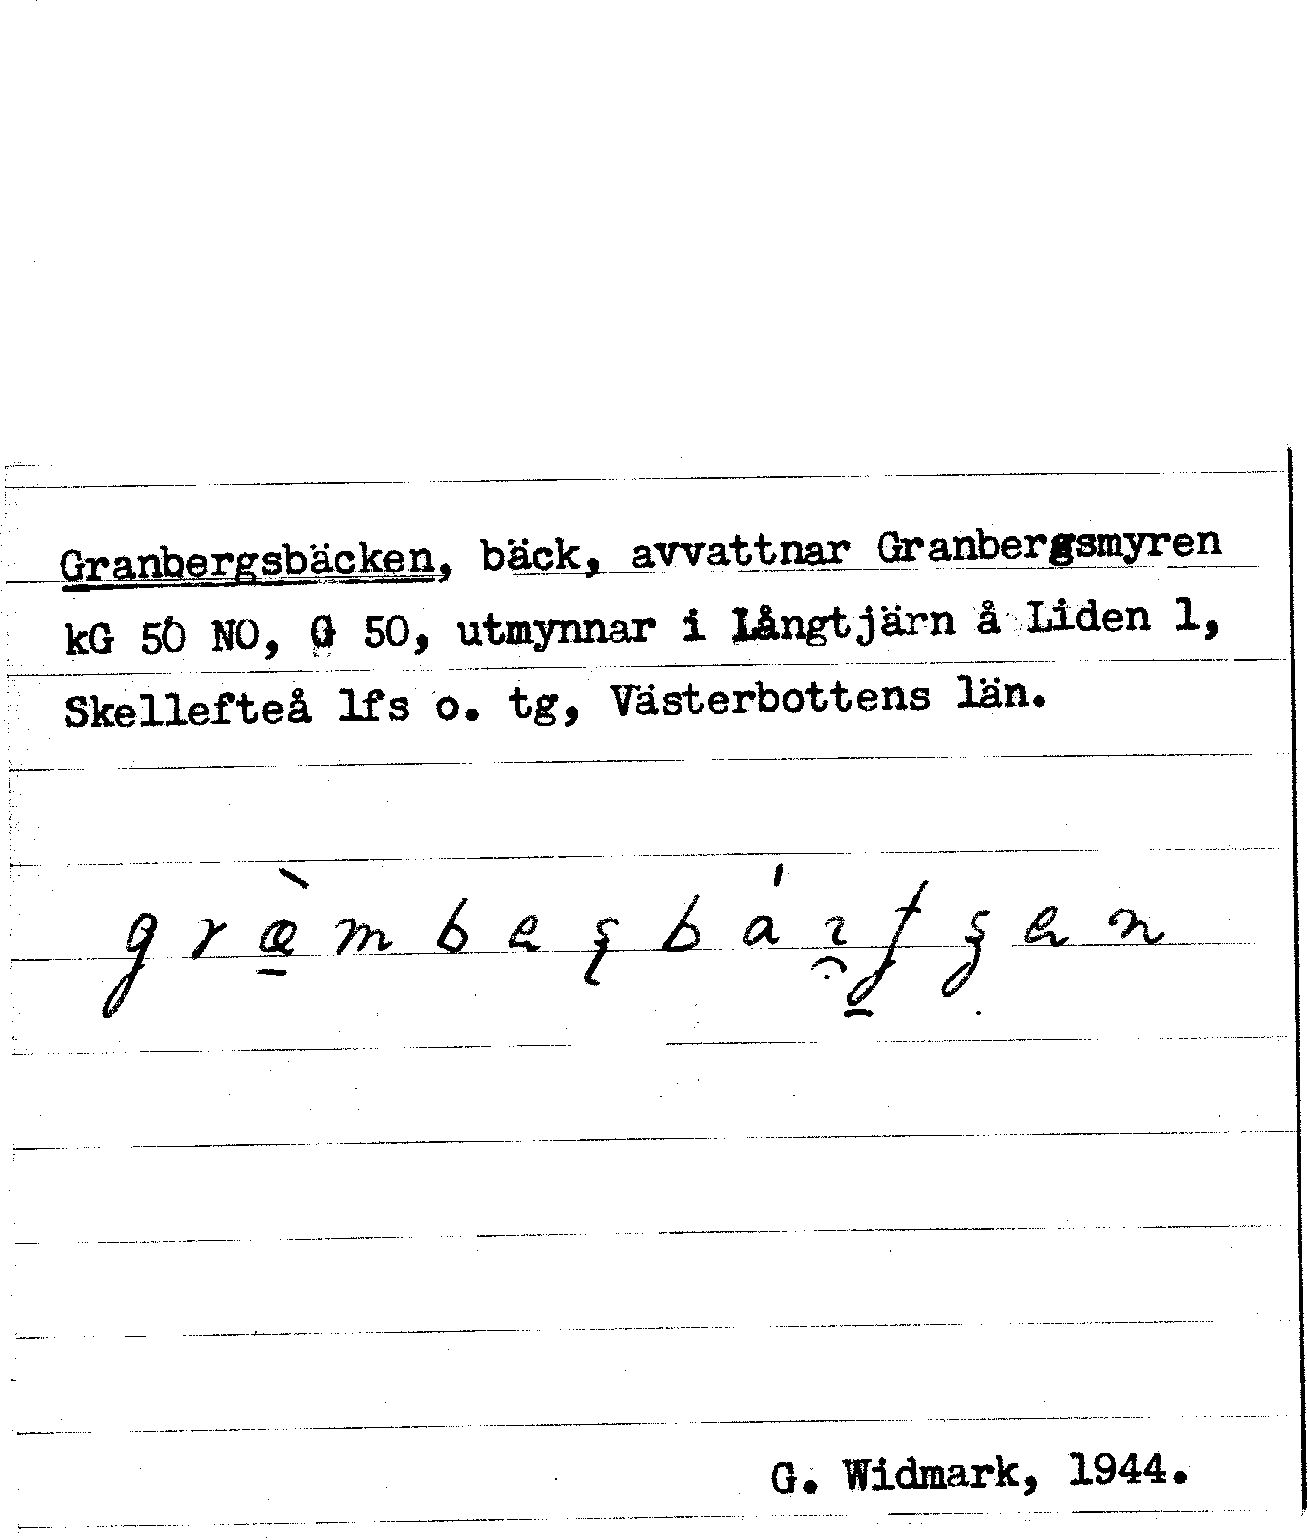 Granbergsbäcken, bäck, avvattnar Granbergsmyren
kG 50 NO, G 50, utmynnar i Långtjärn å Liden 1,
Skellefteå lfs o. tg, Västerbottens län.
G. Widmark, 1944.